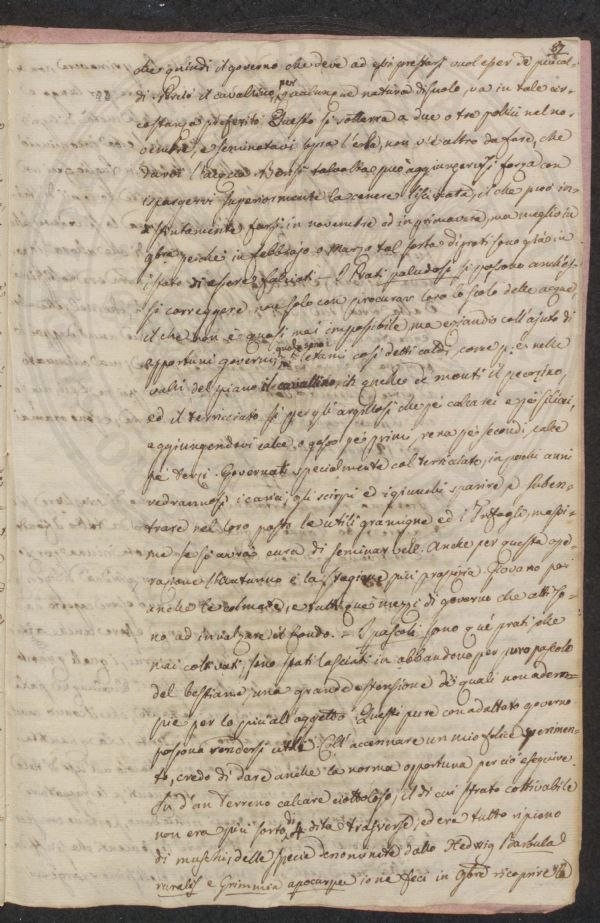 67
che quindi il governo che deve ad essi prestarsi vuol esser de' più cal-
di. Perciò il cavallino, per qualunque natura di suolo, va in tale cir-
costanza preferito. Questo si sotterra a due o tre pollici nel no-
vembre, e seminatavi sopra l'erba, non v'è altro da fare, che
darvi l'acqua. Bensì talvolta può aggiungervisi forza con
ispargervi superiormente la cenere liscivata, il che può in-
distintamente farsi in novembre ed in primavera, ma meglio in
9bre perchè in febbrajo o Marzo tal sorta di prati sono già in
istato di essere falciati — I Prati paludosi si possono anch'es-
si correggere non solo con procurar loro lo scolo delle acque
il che non è quasi mai impossibile, ma eziandio coll'ajuto di
opportuni governi, quali sono i letami così detti caldi come p. e. nelle
valli del piano il cavallino, in quelle de' monti il pecorino,
ed il terricciato sì per gli argillosi che pei calcarei e pei silicei,
aggiungendovi calce o gesso pei primi, rena pei secondi, calce
pei terzi. Governati specialmente col terricciato, in pochi anni
vedrannosi i carici, gli scirpi ed i giunchi sparire e suben-
trare nel loro posto le utili gramigne ed i Trifogli massi-
me se si avrà cura di seminarvelli. Anche per questa ope-
razione l'Autunno è la stagione più propizia. Giovano poi
anche le colmate, e tutti que' mezzi di governo che atti so-
no ad innalzare il fondo. = I pascoli sono que' prati, che
mai coltivati, sono stati lasciati in abbandono per puro pascolo
del bestiame una grande estensione de' quali non adem-
pie per lo più all'oggetto. Questi pure con adattato governo
possono rendersi utili. Coll'accennare un mio felice sperimen-
to, credo di dare anche la norma opportuna per ciò eseguire.
Su d'un Terreno calcare ciottoloso, il di cui strato coltivabile
non era più sorto di 4 dita trasverse, ed era tutto ripieno
di muschi, delle specie denominate dallo Hedwig Barbula
ruralis e Grimmia apocarpa io ne feci in 9bre ricoprire la